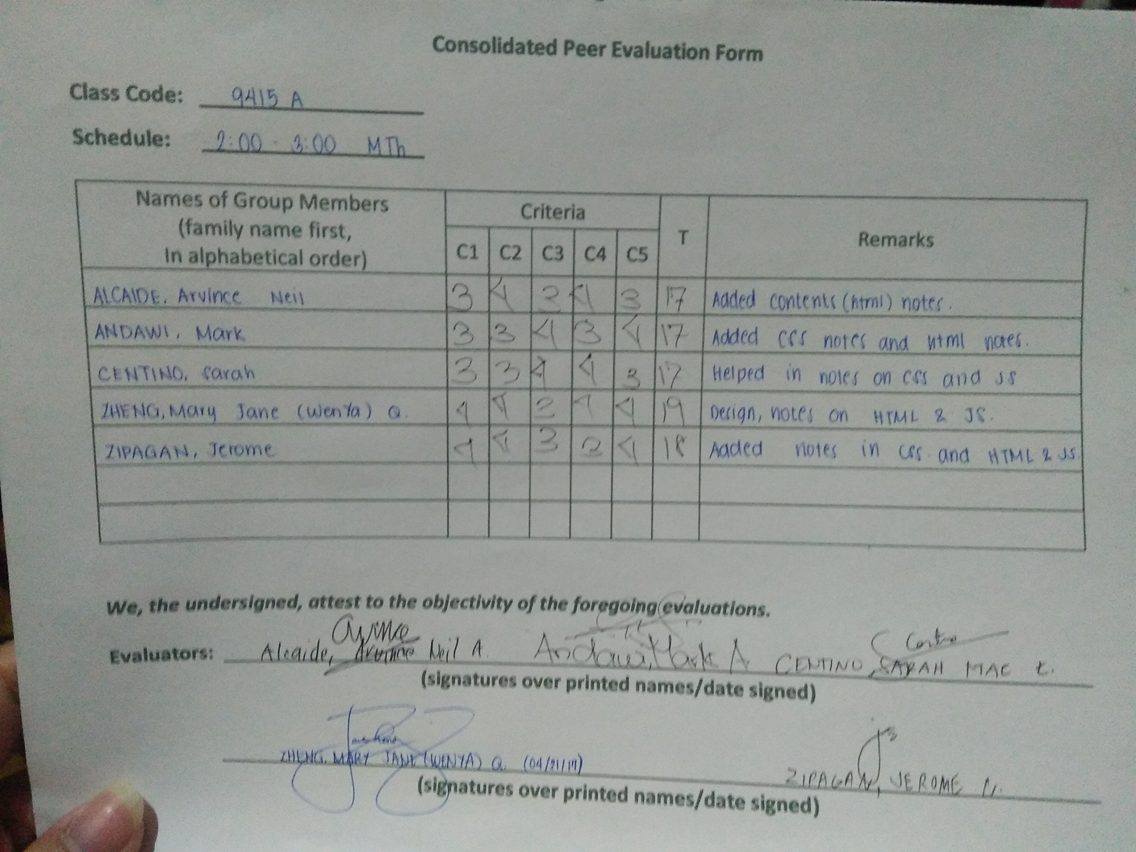 Consolidated Peer Evaluation Form
Class Code: 9415 A
Schedule: 2:00 - 3:00 MTh
Names of Group Members
(family name first,
In alphabetical order)
Criteria
C1 C2 C3 C4 C5
T
Remarks
ALCAIDE, Arvince Neil 3 4 3 4 3 17 Added contents (html) notes.
ANDAWI, Mark 3 3 4 3 4 17 Added CSS notes and html notes.
CENTINO, Sarah 3 3 4 4 3 17 Helped in notes on CSS and JS
ZHENG, Mary Jane (WenYa) Q. 4 4 3 4 4 19 Design, notes on HTML & JS.
ZIPAGAN, Jerome 4 4 3 3 4 18 Added notes in CSS and HTML & JS
We, the undersigned, attest to the objectivity of the foregoing evaluations.
Evaluators: Alcaide, Arvince Neil A. Andawi, Mark A CENTINO, SARAH MAE
(signatures over printed names/date signed)
ZHENG, MARY JANE (WENYA) Q. ZIPAGAN, JEROME
(signatures over printed names/date signed)